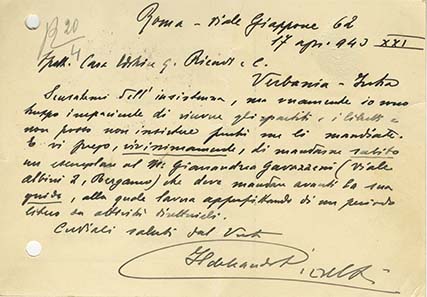 Roma - Viale Giappone 62
20
4
17 apr. 943 XXI
Spett. Casa G. Ricordi e C.
Verbania - Intra
Scusatemi dell'insistenza, ma veramente io sono
troppo impaziente di ricevere gli spartiti, i libretti e
non posso non insistere perché me li mandiate.
E vi prego, vivissimamente, di mandarne subito
un esemplare al M. Gianandrea Gavazzeni (Viale
Albini 2, Bergamo) che deve mandare avanti la sua
guida, alla quale lavora approfittando di un periodo
libero da attività
Cordiali saluti dal Vostro
Ildebrando Pizzetti